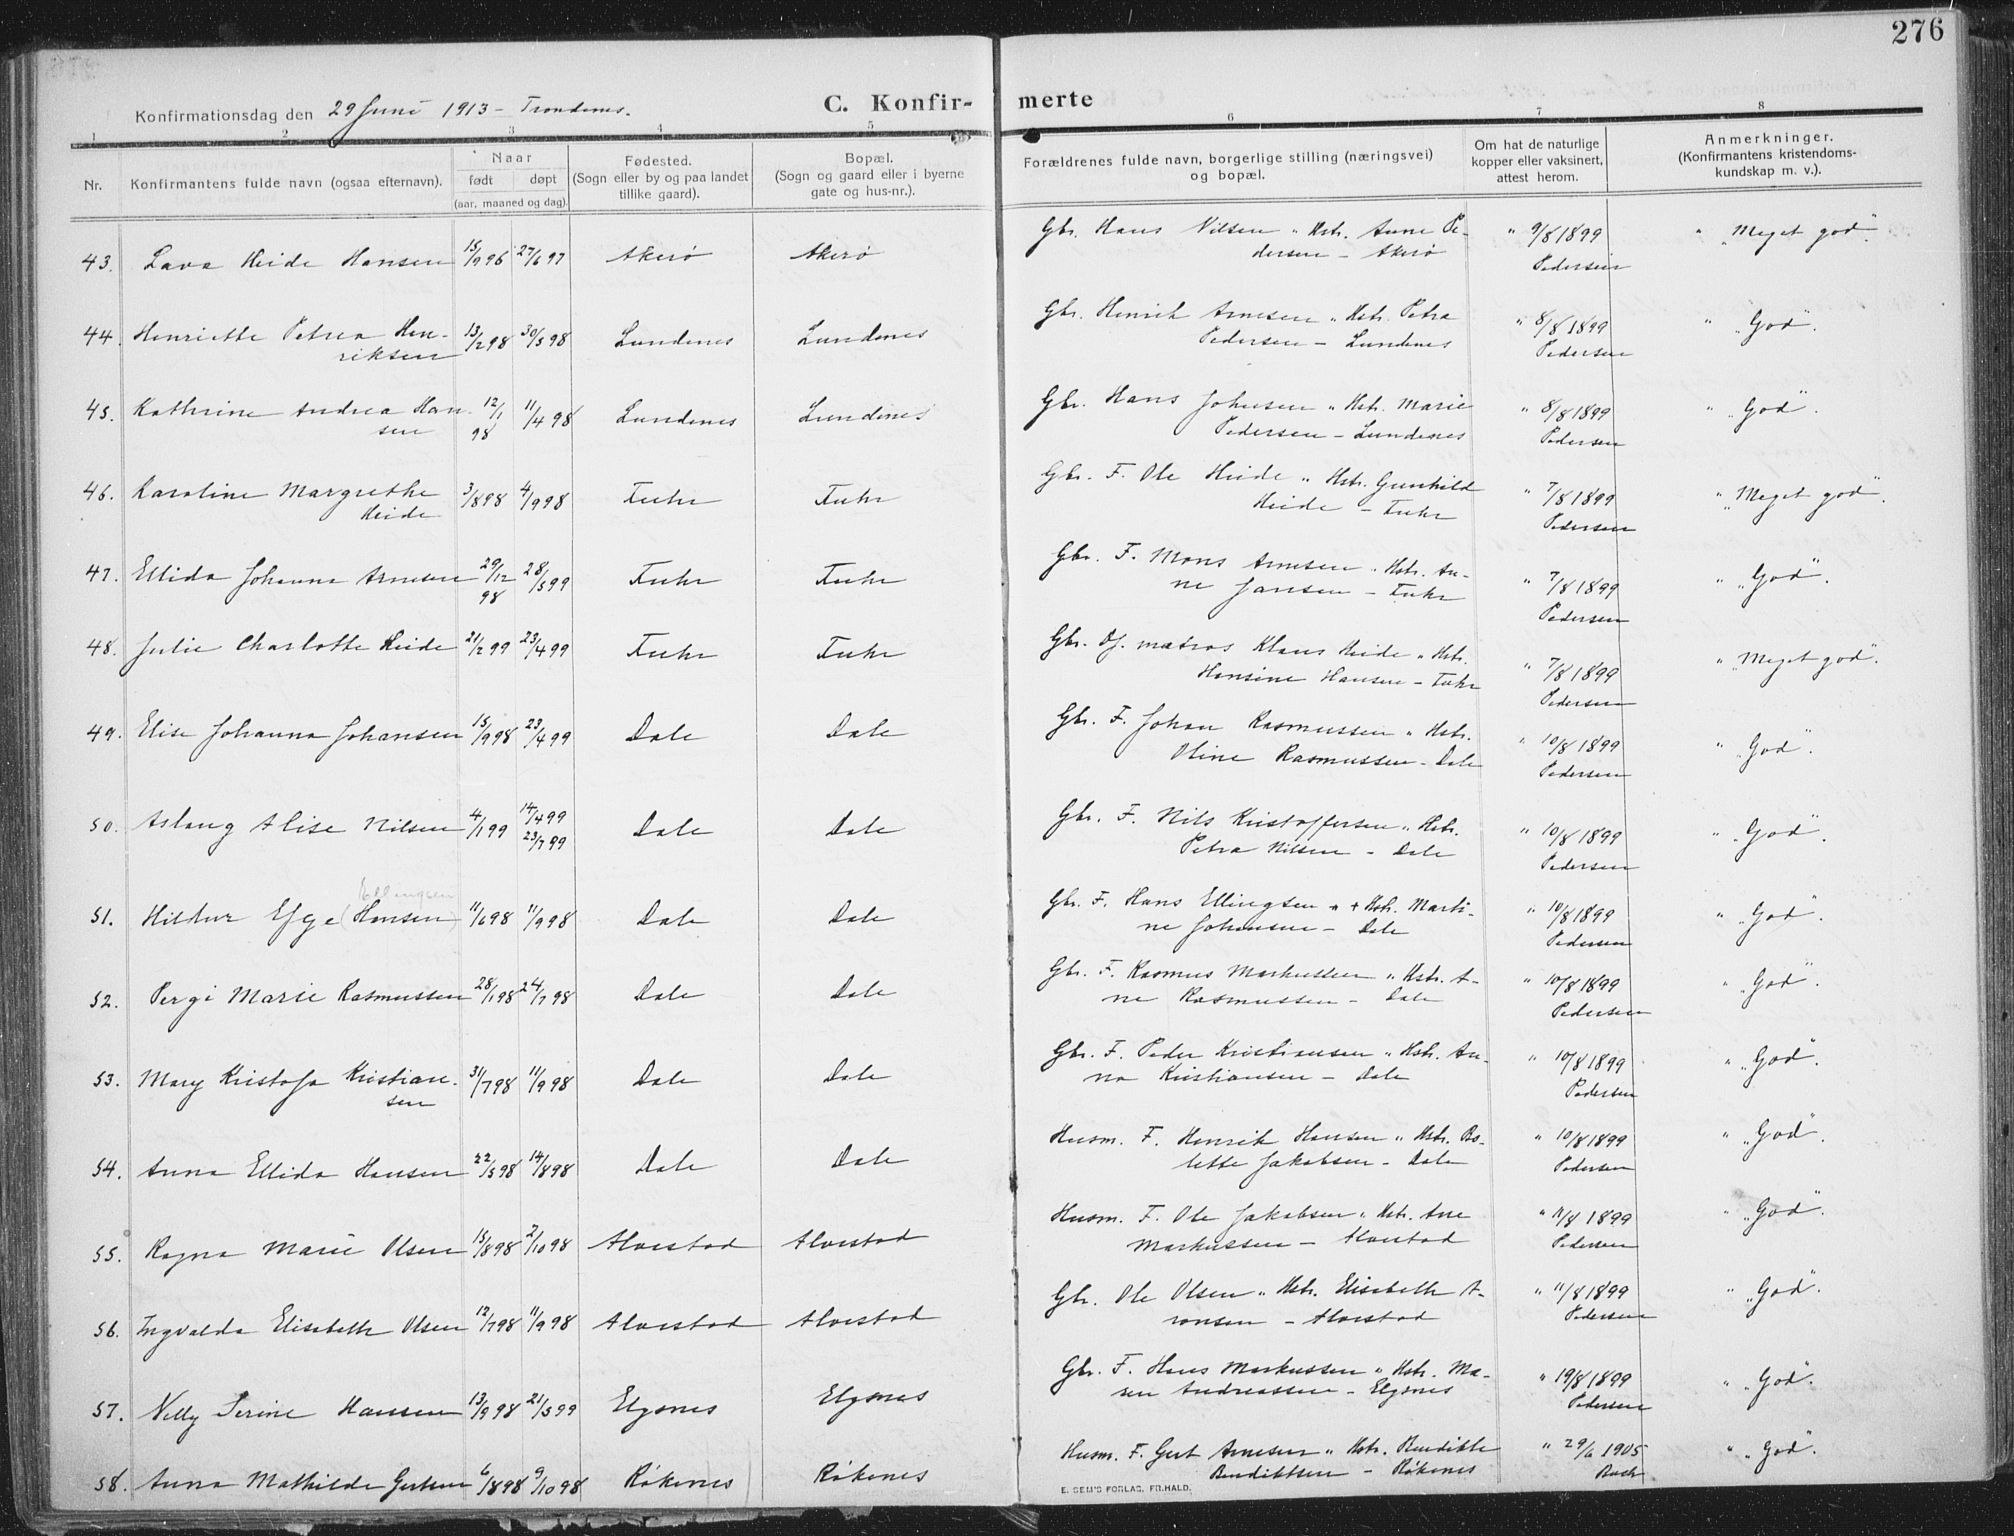 276
Konfirmationsdag den 29 Juni 1913 - Trondenes.
C. Konfir- merte
1 2 3 4 5 6 7 8
Nr.
Konfirmantens fulde navn (ogsaa efternavn).
Naar
født døpt
(aar, maaned og dag).
Fødested.
(Sogn eller by og paa landet
tillike gaard).
Bopæl.
(Sogn og gaard eller i byerne
gate og hus-nr.).
Forældrenes fulde navn, borgerlige stilling (næringsvei)
og bopæl.
Om hat de naturlige
kopper eller vaksinert,
attest herom.
Anmerkninger.
(Konfirmantens kristendoms-
kundskap m. v.).
43. Lava Heide Hansen 15/9 96 27/6 97 Akerø Akerø Gbr. Hans Nilsen " Hstr. Anne Pe- " 9/8 1899 " "Meget god".
dersen - Akerø Pedersen
44. Henriette Petrea Hen- 13/2 98 30/5 98 Lundenes Lundenes Gbr. Henrik Arnesen " Hstr. Petra " 8/8 1899 " "God".
riksen Pedersen - Lundenes Pedersen
45. Kathrine Andrea Han- 12/1 98 11/4 98 Lundenes Lundenes Gbr. Hans Johnsen " Hstr. Marie " 8/8 1899 " "God".
sen Pedersen - Lundenes Pedersen
46. Karoline Margrethe 3/8 98 4/9 98 Fuhr Fuhr Gbr. F. Ole Heide " Hstr. Gunhild " 7/8 1899 " "Meget god".
Heide Heide - Fuhr Pedersen
47. Ellida Johanna Arnesen 29/12 98 28/5 99 Fuhr Fuhr Gbr. F. Mons Arnesen " Hstr. An- " 7/8 1899 " "God".
ne Jansen - Fuhr Pedersen
48. Julie Charlotte Heide 21/2 99 23/4 99 Fuhr Fuhr Gbr. Of. matros Klaus Heide " Hstr. " 7/8 1899 " "Meget god".
Hansine Hansen - Fuhr Pedersen
49. Elise Johanna Johansen 15/9 98 23/4 99 Dale Dale Gbr. F. Johan Rasmussen " Hstr. " 10/8 1899 " "God".
Oline Rasmussen - Dale Pedersen
50. Aslaug Alise Nilsen 4/1 99 14/4 99 Dale Dale Gbr. F. Nils Kristoffersen " Hstr. " 10/8 1899 " "God".
23/7 99 Petra Nilsen - Dale Pedersen
Ellingsen
51. Hildur Efge (Hansen) 11/6 98 11/9 98 Dale Dale Gbr. F. Hans Ellingsen " + Hstr. Marti- " 10/8 1899 " "God".
ne Johansen - Dale Pedersen
52. Pergi Marie Rasmussen 28/1 98 24/7 98 Dale Dale Gbr. F. Rasmus Markussen " Hstr. A- " 10/8 1899 " "God".
ne Rasmussen - Dale Pedersen
53. Mary Kristofa Kristian- 31/7 98 11/9 98 Dale Dale Gbr. F. Peder Kristiansen " Hstr. An- " 10/8 1899 " "God".
sen na Kristiansen - Dale Pedersen
54. Anna Ellida Hansen 22/5 98 14/8 98 Dale Dale Husm. F. Henrik Hansen " Hstr. Bo- " 10/8 1899 " "God".
lette Jakobsen - Dale Pedersen
55. Ragna Marie Olsen 15/8 98 2/10 98 Alvestad Alvestad Husm. F. Ole Jakobsen " Hstr. Ane " 11/8 1899 " "God".
Markussen - Alvestad Pedersen
56. Ingvalda Elisabeth Olsen 12/7 98 11/9 98 Alvestad Alvestad Gbr. Ole Olsen " Hstr. Elisabeth A- " 11/8 1899 " "God".
ronsen - Alvestad Pedersen
57. Nelly Serine Hansen 13/9 98 21/5 99 Elgsnes Elgsnes Gbr. F. Hans Markussen " Hstr. Ma- " 19/8 1899 " "God".
ren Andreassen - Elgsnes Pedersen
58. Anna Mathilde Gertsen 6/8 98 9/10 98 Røkenes Røkenes Husm. F. Gert Arnesen " Hstr. Bendikte " 29/6 1905 " "God".
Bendiktsen - Røkenes Buch
E. SEM'S FORLAG, FR.HALD.